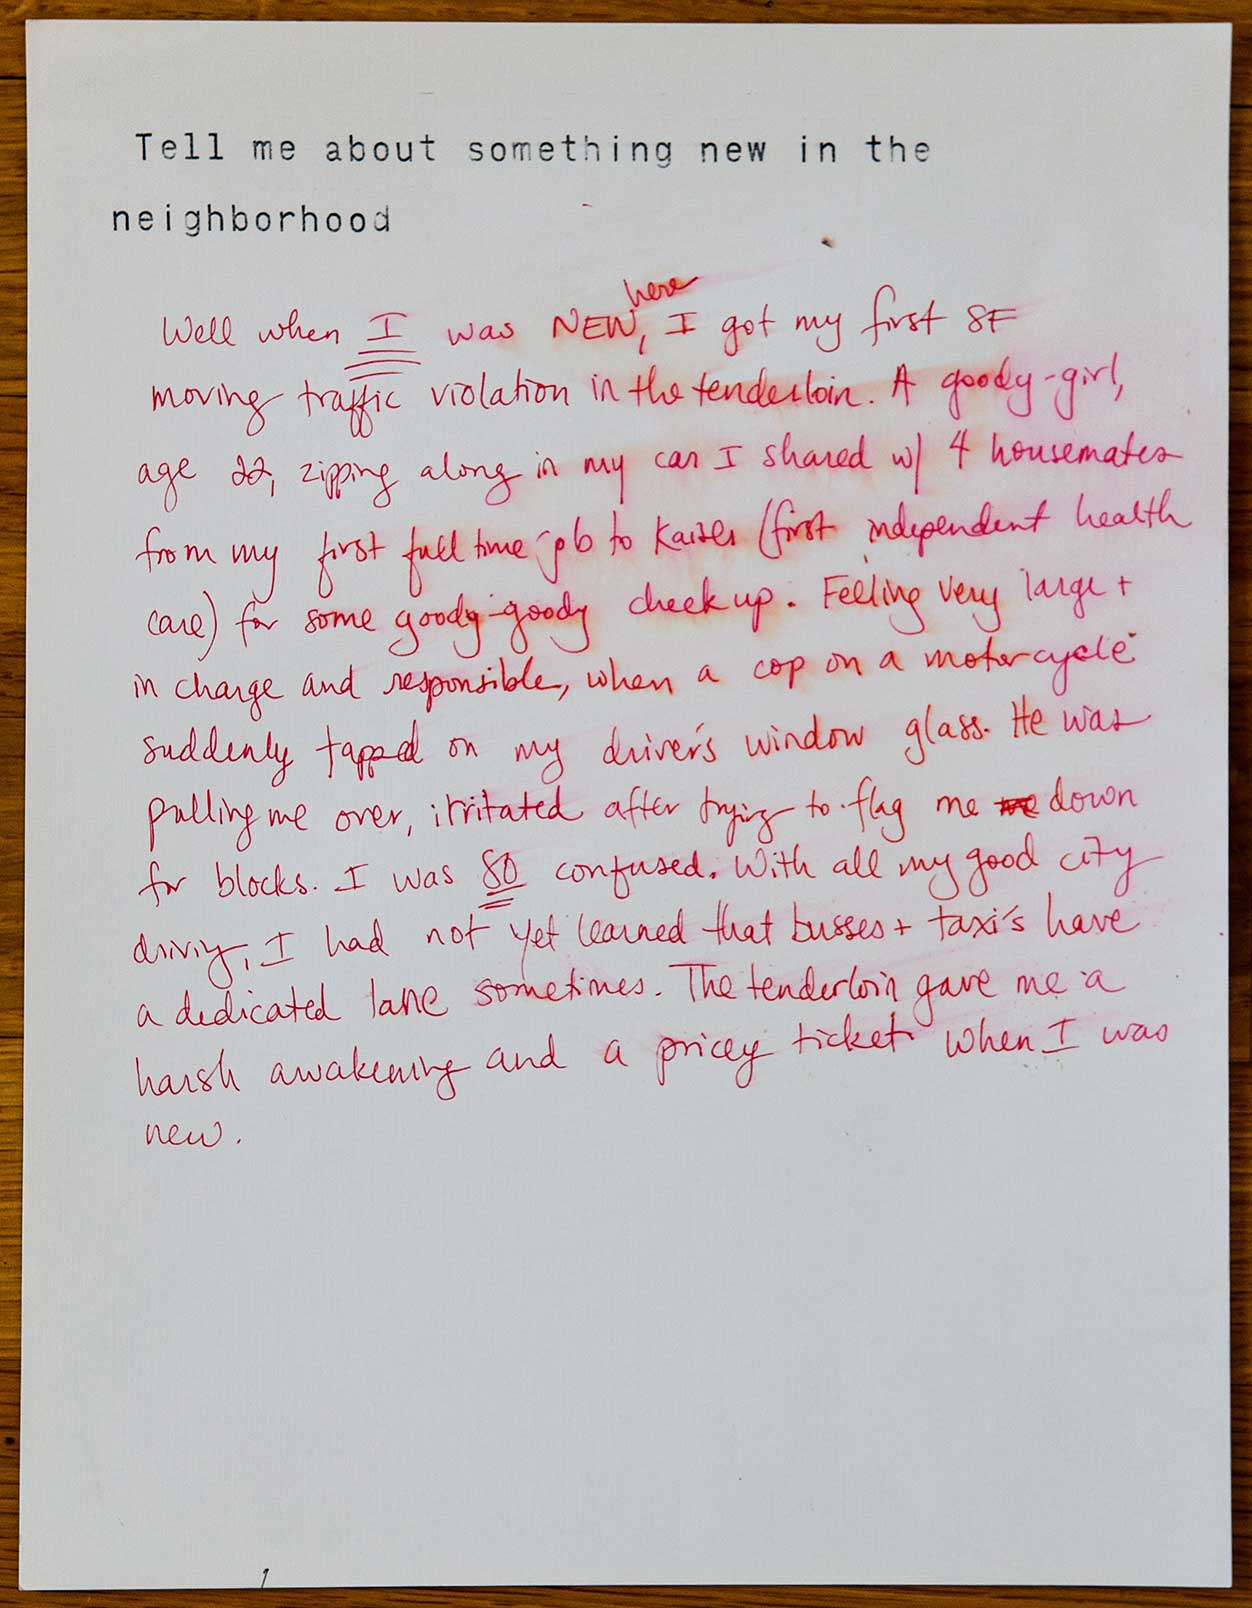 Tell me about something new in the
neighborhood
Well when I was NEW here, I got my first SF
moving traffic violation in the tenderloin. A goody-girl,
age 22, zipping along in my car I shared w/ 4 housemates
from my first full time job to Kaiser (first independent health
care) for some goody-goody check up. Feeling very large +
in charge and responsible, when a cop on a motorcycle
suddenly tapped on my driver's window glass. He was
pulling me over, irritated after trying to flag me me down
for blocks. I was SO confused. With all my good city
driving, I had not yet learned that busses + taxi's have
a dedicated lane sometimes. The tenderloin gave me a
harsh awakening and a pricey ticket when I was
new.